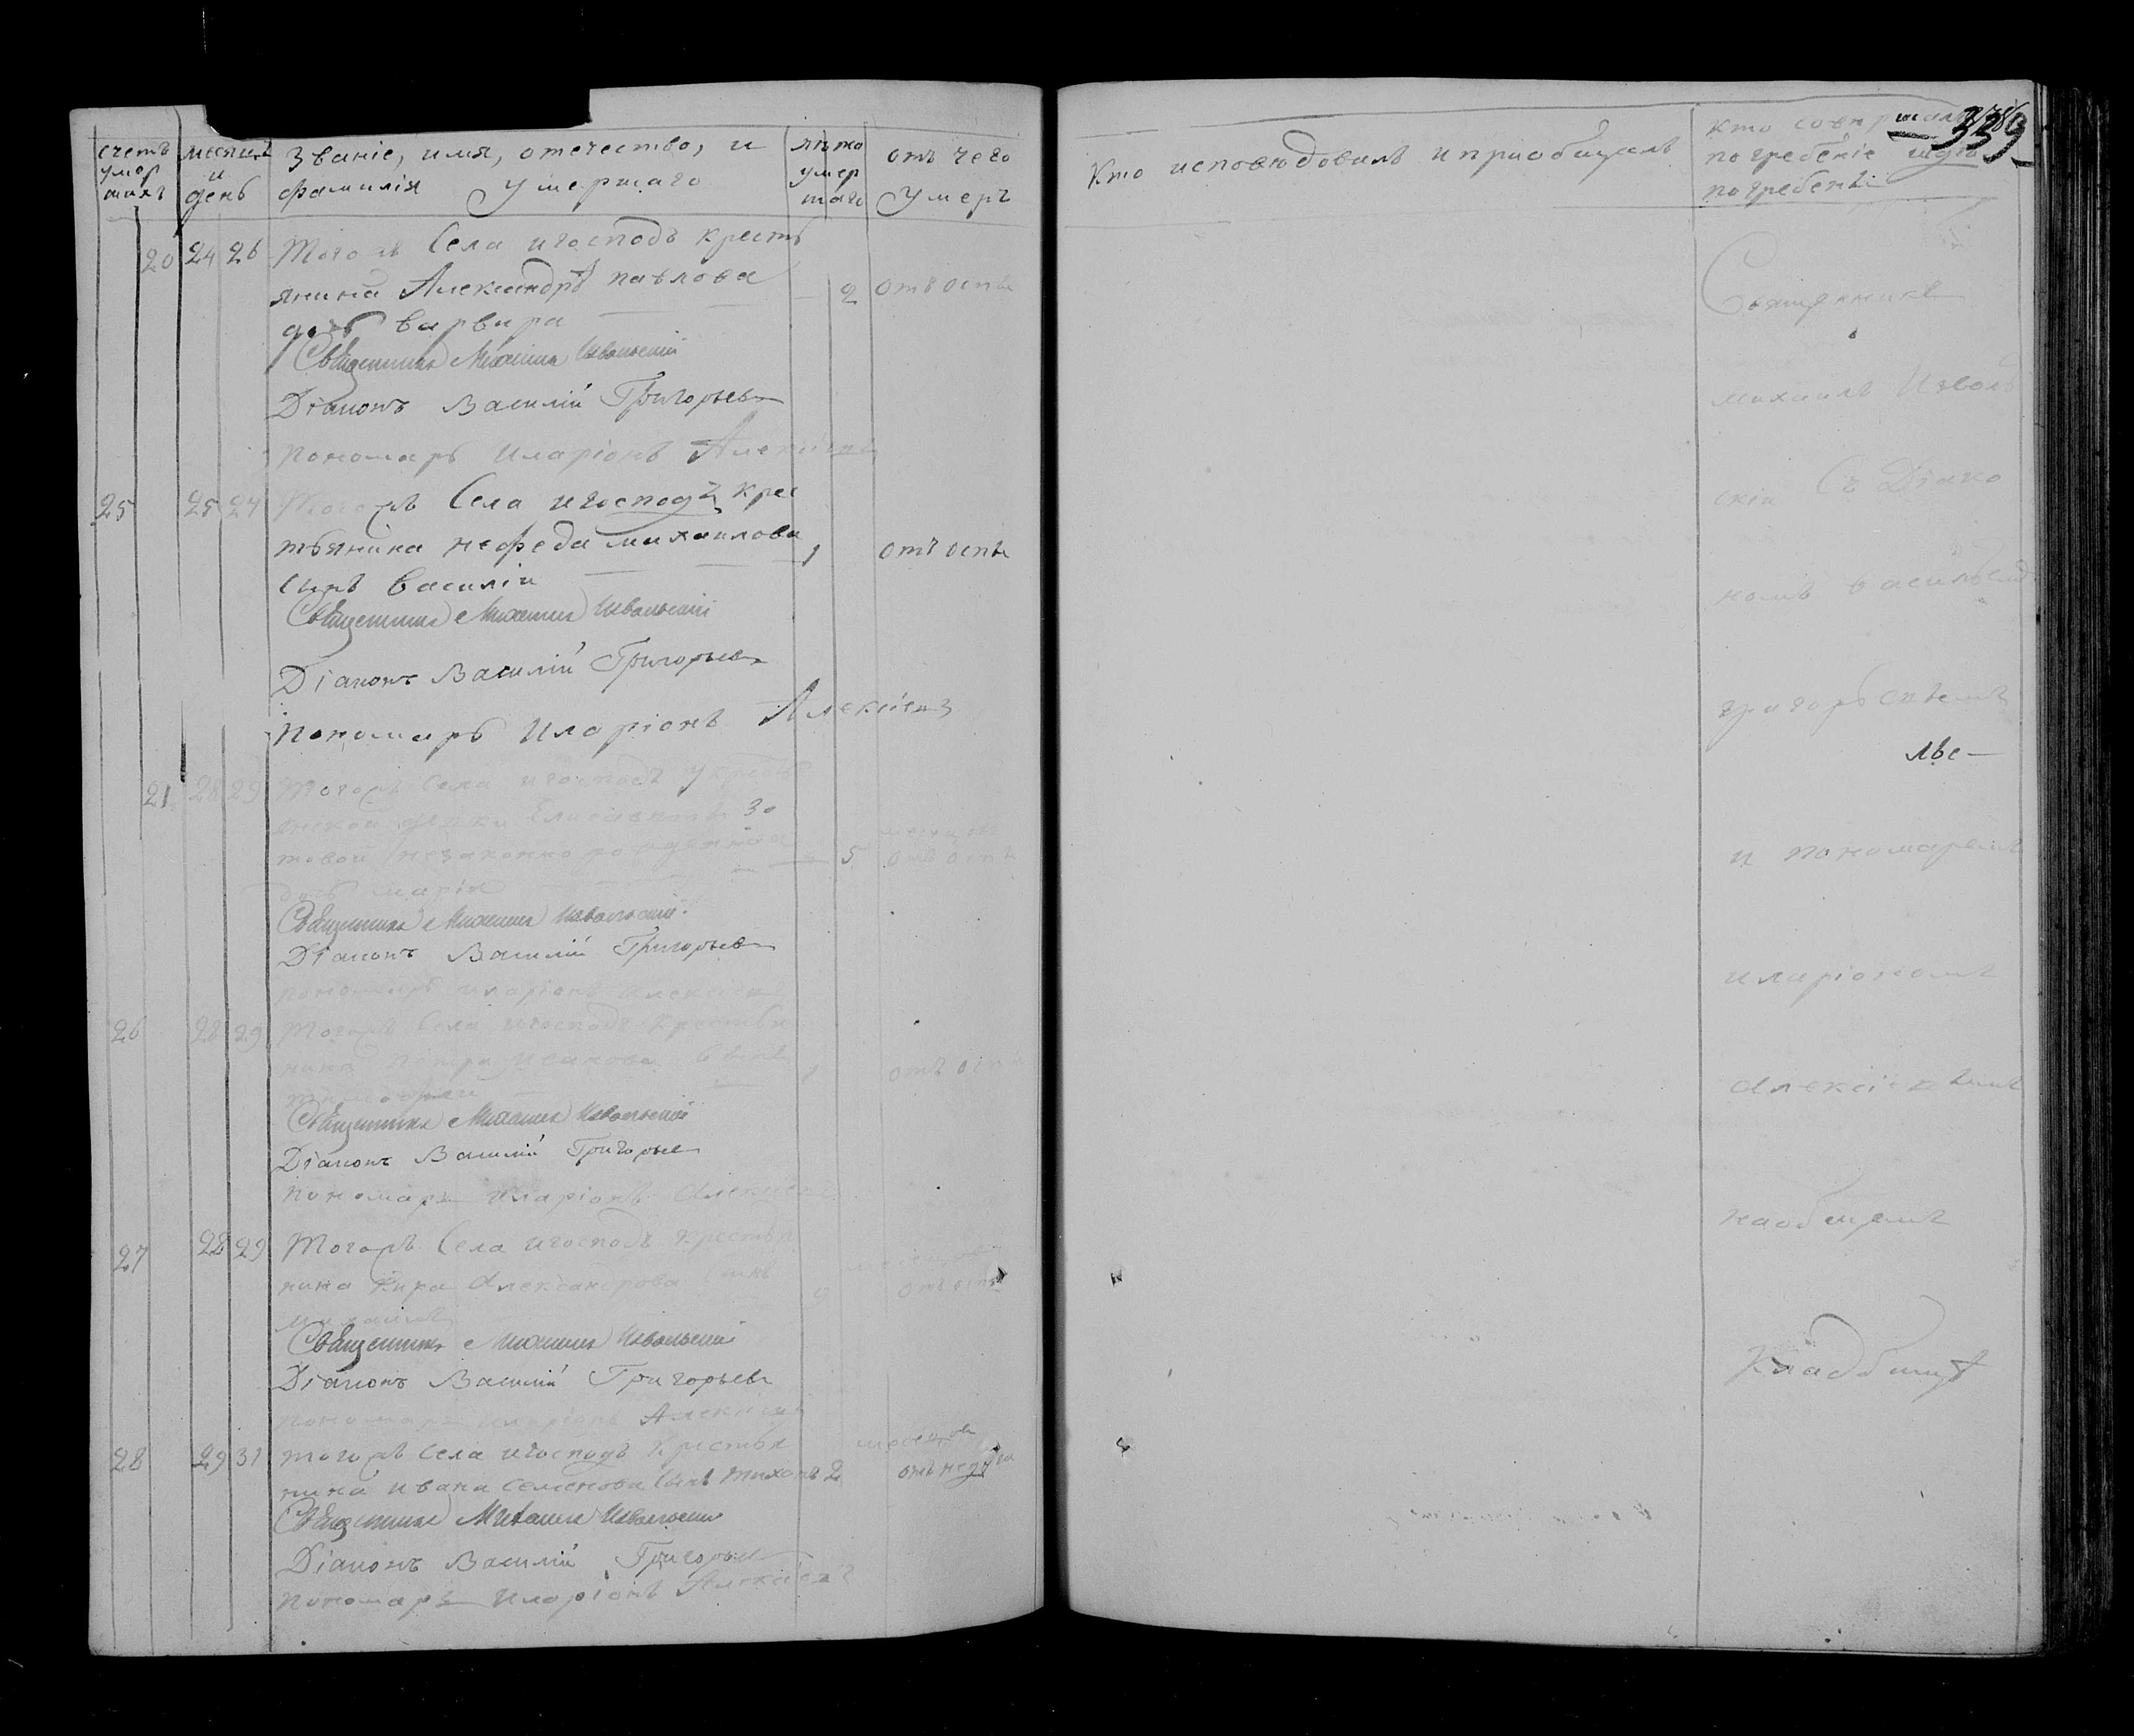 счетъ умершихъ
мѣсяцъ и день
Званіе, имя, отечество, и
фамилія Умершаго
лѣта умершаго
отъ чего
Умеръ
20 24 26 Тогожъ Села игосподъ кресть
янина Александра павлова
дочь варвара 2 отъ оспы
Священникъ Михаилъ Извольскій
Діаконъ Василій Григорьевъ
Пономарь Иларіонъ Алексіевъ
25 25 27 Тогожъ Села игосподъ крес
тьянина нефеда михаилова
сынъ василіи 1 отъ оспы
Священникъ Михаилъ Извольскій
Діаконъ Василій Григорьевъ
Пономарь Иларіонъ Алексіевъ
21 28 29 Тогожъ Села игосподъ у кресть
янской девки Елисаветы Зо
товой незаконно рожденная 5 месяцовъ отъ оспы
дочь марія
Священникъ Михаилъ Извольскій
Діаконъ Василій Григорьевъ
пономарь иларіонъ алексіевъ
26 28 29 Тогожъ Села игосподъ крестья
нина Петра Исакова сынъ 1 отъ оспы
тимофеи
Священникъ Михаилъ Извольскій
Діаконъ Василій Григорьев
Пономарь иларіонъ Алексіевъ
27 28 29 Тогожъ Села игосподъ крестья
нина Кира Александрова сынъ 9 месяцовъ отъ оспы
михаилъ
Священникъ Михаилъ Извольскій
Діаконъ Василій Григорьевъ
пономарь иларіонъ Алексіевъ
28 29 31 тогожъ Села игосподъ крестья
нина ивана семенова сынъ тихонъ 2 месяцовъ отъ недуга
Священникъ Михаилъ Извольскій
Діаконъ Василій Григорьев
Пономарь Иларіонъ Алексіевъ
Кто исповѣдовалъ и приобщалъ
кто совершалъ
погребеніе игдѣ
погребены
339
Священникъ
михаилъ Изволь
скіи Съ Діако
номъ василіемъ
григорьевымъ
и пономаремъ
иларіономъ
Алексіевымъ
наобщемъ
Кладбищѣ